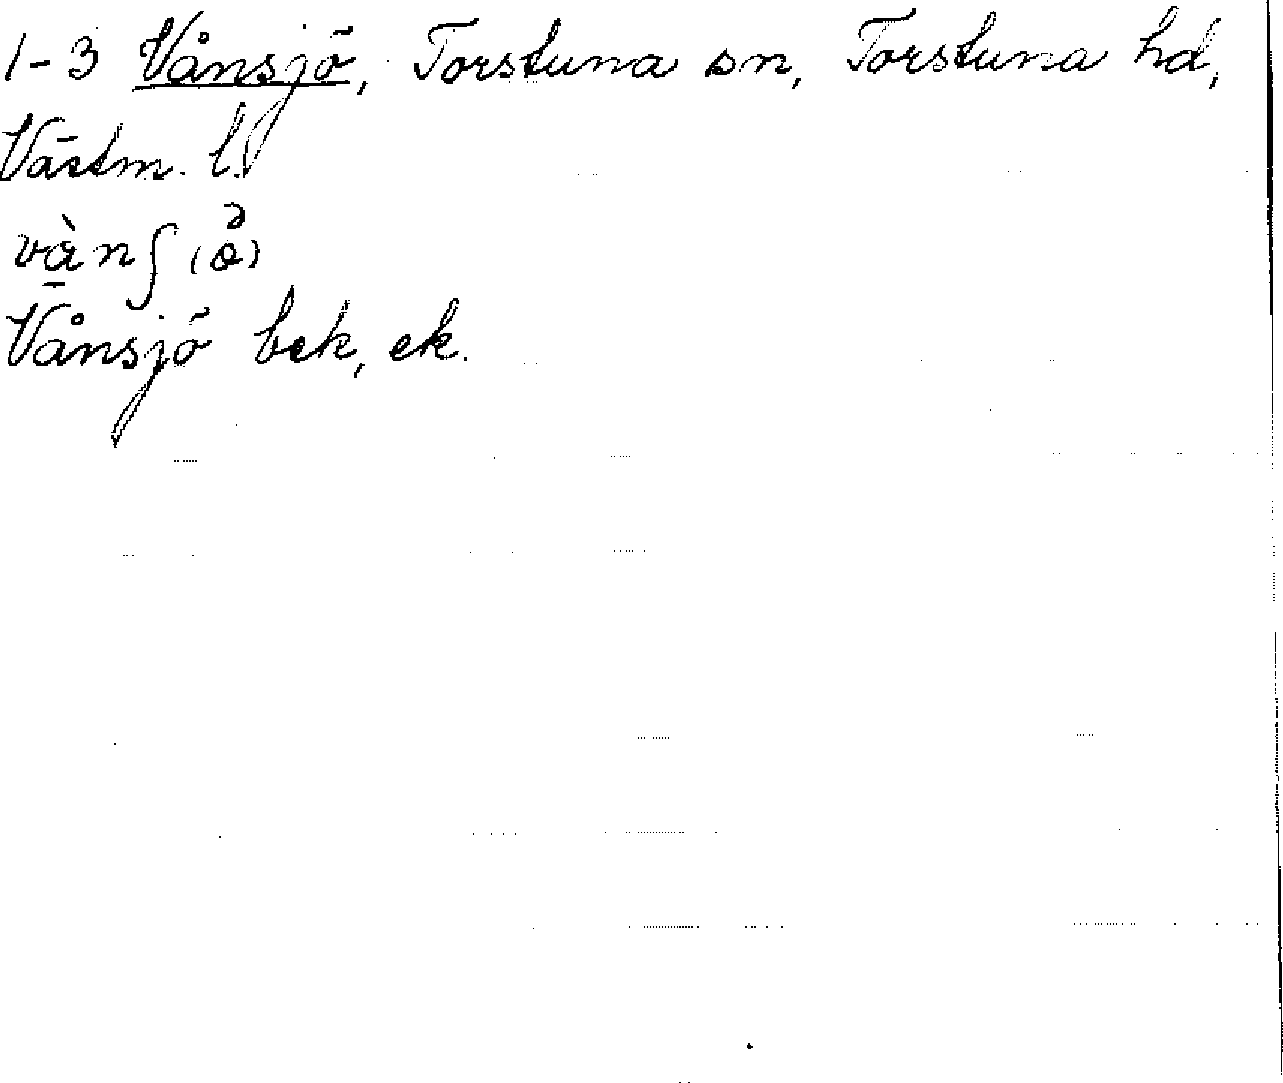 1-3 Vånsjö, Torstuna sn, Torstuna hd,
Västm. l.
Vånsjö bek, ek.